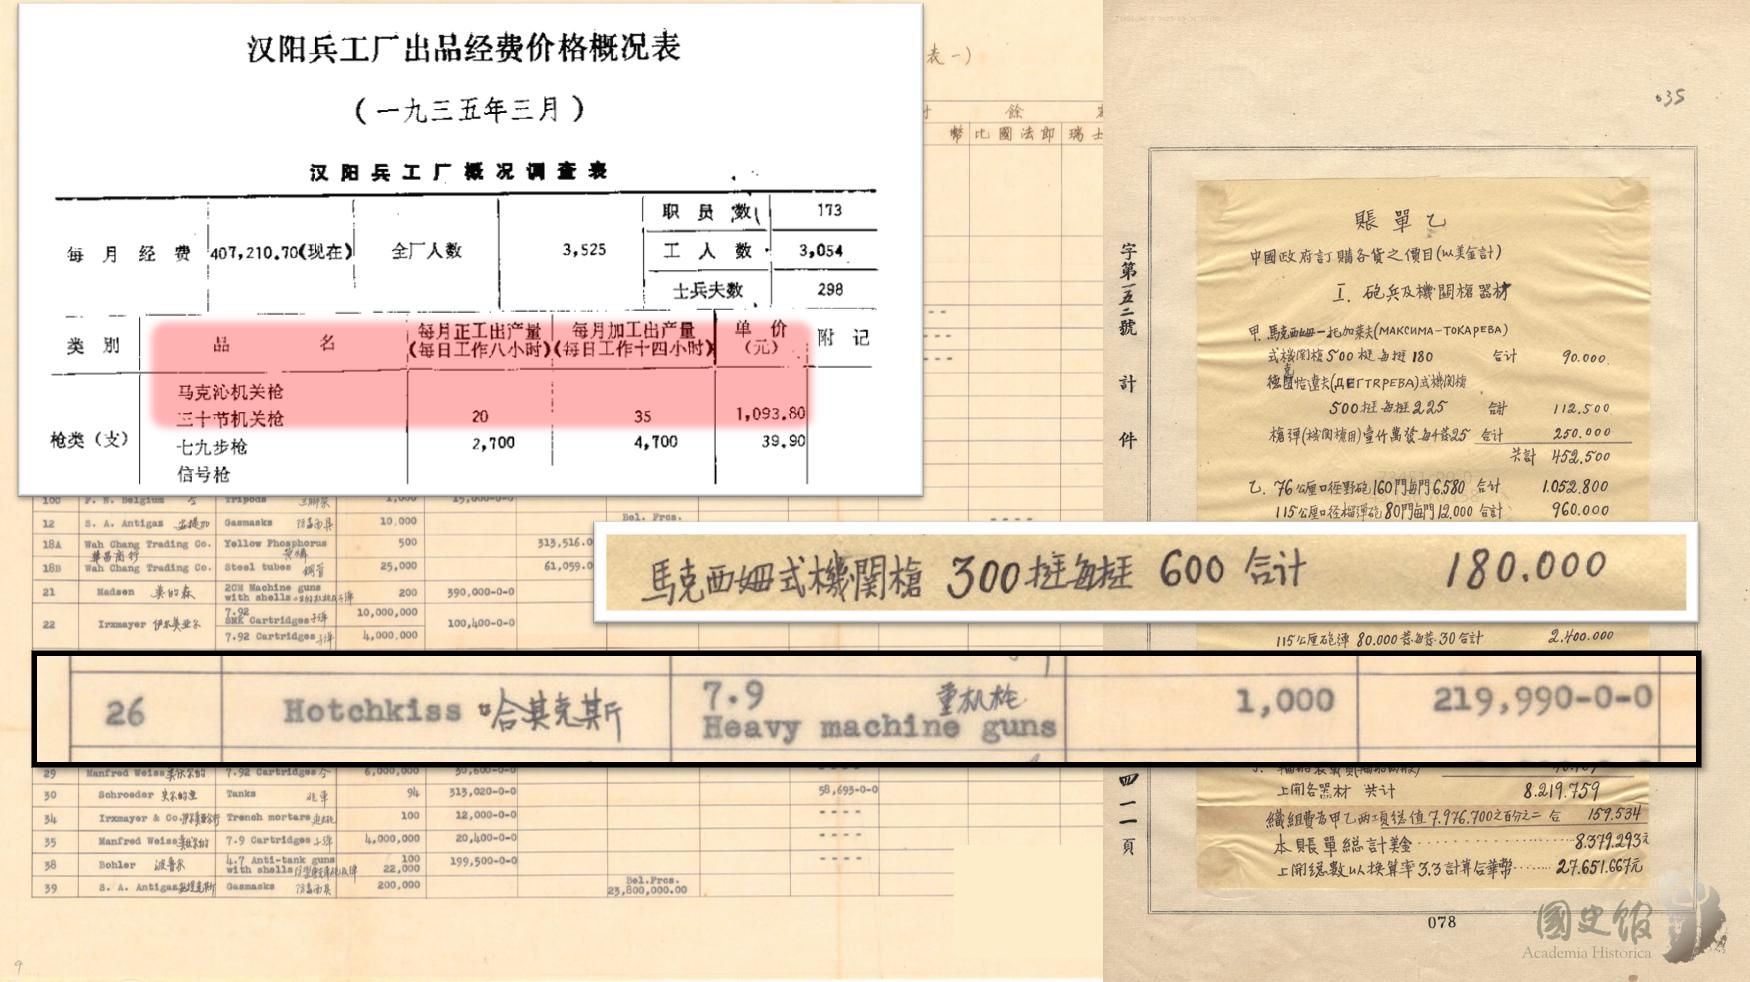 汉阳兵工厂出品经费价格概况表
(一九三五年三月)
汉阳兵工厂概况调查表
每月经费 407,210.70(现在) 全厂人数 3,525 职员数 173
工人数 3,054
士兵夫数 298
类别 品名 每月正工出产量(每日工作八小时) 每月加工出产量(每日工作十四小时) 单价(元) 附记
枪类(支)
马克沁机关枪
三十节机关枪 20 35 1,093.80
七九步枪 2,700 4,700 39.90
信号枪
表一)
餘
幣 比國法郎 瑞士
100 F. N. Belgium Tripods 三腳架 1,000 15,000-0-0
Bel. Frcs.
12 S. A. Antigas Gasmasks 防毒面具 10,000
18A Wah Chang Trading Co. 華昌商行 Yellow Phosphorus 黄燐 500 313,516.0
18B Wah Chang Trading Co. Steel tubes 鋼管 25,000 61,059.0
21 Madsen 2CM Machine guns with shells 200 390,000-0-0
22 Irxmayer 7.92 SMK Cartridges 10,000,000 100,400-0-0
7.92 Cartridges 4,000,000
26 Hotchkiss 哈其克斯 7.9 Heavy machine guns 重机枪 1,000 219,990-0-0
29 Manfred Weiss 7.92 Cartridges 6,000,000 30,600-0-0
30 Schroeder Tanks 94 313,020-0-0 58,693-0-0
34 Irxmayer & Co. Trench mortars 100 12,000-0-0
35 Manfred Weiss 7.9 Cartridges 4,000,000 20,400-0-0
38 Bohler 4.7 Anti-tank guns with shells 100 22,000 199,500-0-0
39 S. A. Antigas Gasmasks 防毒面具 200,000 Bel.Frcs. 23,800,000.00
9
035
字第一五二號
計
件
四一一頁
賬單乙
中國政府訂購各貨之價目(以美金計)
I. 砲兵及機關槍器材
甲. 馬克西姆—托加萊夫(МАКСИМА-ТОКАРЕВА)
式機関槍500挺每挺180 合计 90.000
克
500挺每挺225 合計 112.500
槍彈(機関槍用)壹仟萬發每千答25 合计 250.000
共計 452.500
乙. 76公厘口徑野砲160門每門6.580 合計 1.052.800
115公厘口徑榴彈砲80門每門12.000 合計 960.000
馬克西姆式機関槍 300挺每挺 600 合计 180.000
115公厘砲彈 80.000 答每答30合計 2.400.000
上開各器材 共计 8.219.759
織組費為甲乙两項總值7.976.700之百分之二 合 159.534
本賬單總計美金 8.379.293元
上開總數以換算率3.3計算合華幣 27.651.667元
078
國史館
Academia Historica